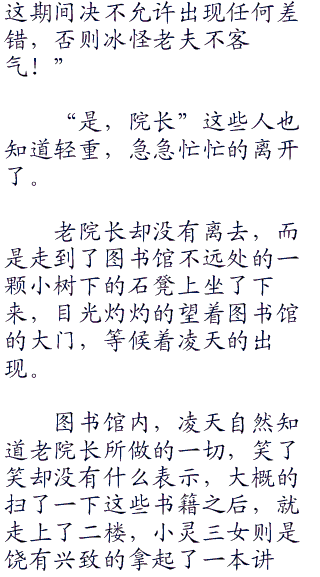 这期间决不允许出现任何差
错，否则冰怪老夫不客
气！”
“是，院长”这些人也
知道轻重，急急忙忙的离开
了。
老院长却没有离去，而
是走到了图书馆不远处的一
颗小树下的石凳上坐了下
来，目光灼灼的望着图书馆
的大门，等候着凌天的出
现。
图书馆内，凌天自然知
道老院长所做的一切，笑了
笑却没有什么表示，大概的
扫了一下这些书籍之后，就
走上了二楼，小灵三女则是
饶有兴致的拿起了一本讲